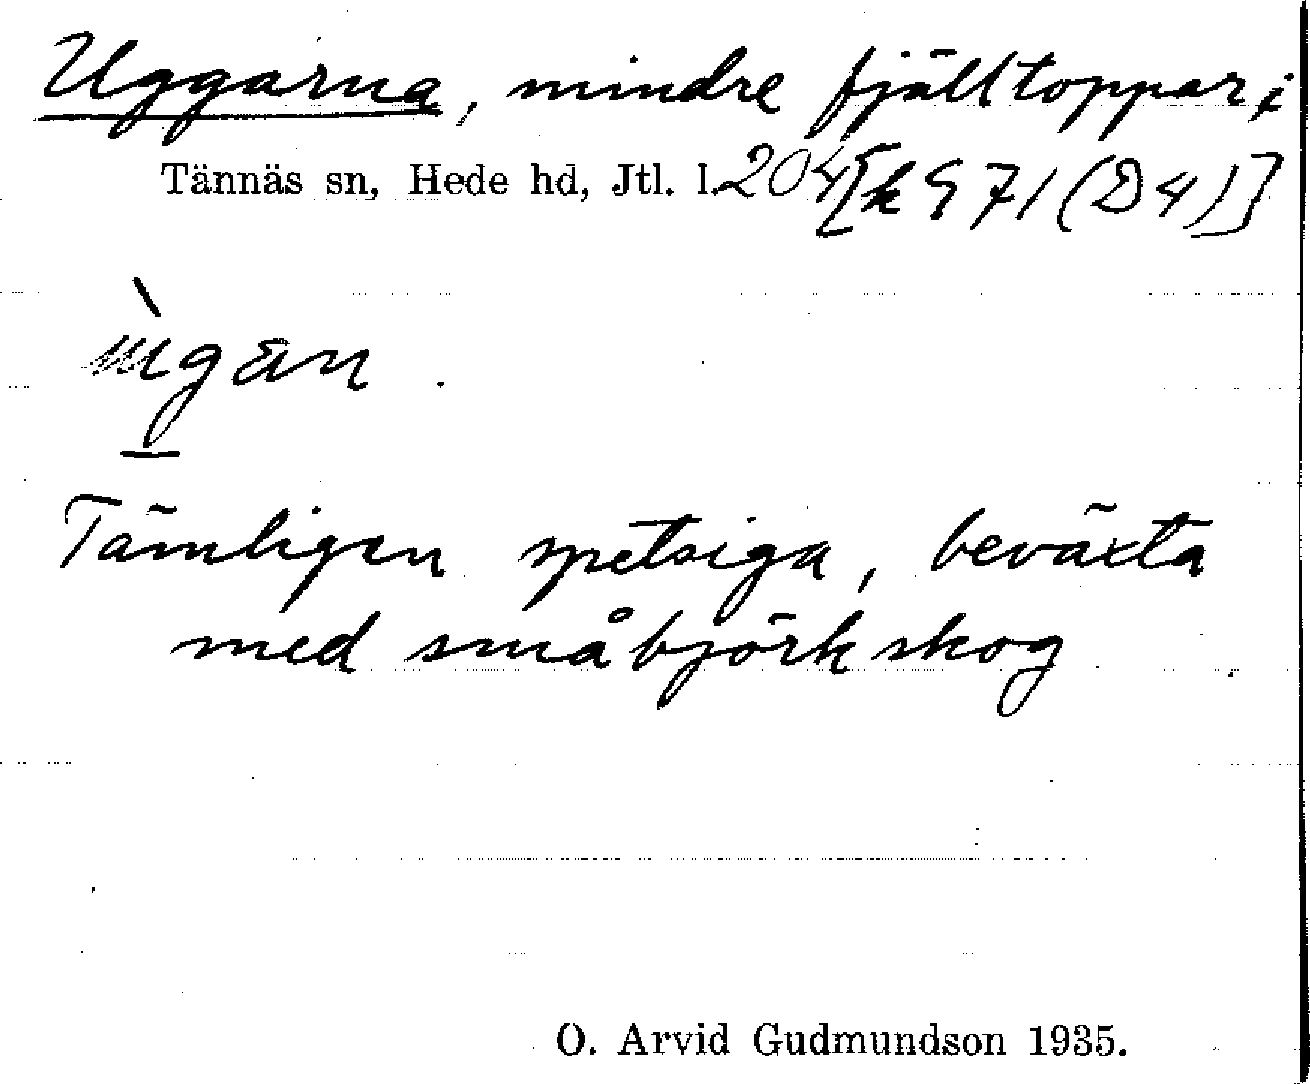 Uggarna, mindre fjälltoppar i
Tännäs sn, Hede hd, Jtl. l. 204 [k 971 (D4)]
Tämligen spetsiga, beväxta
med småbjörkskog
O. Arvid Gudmundson 1935.